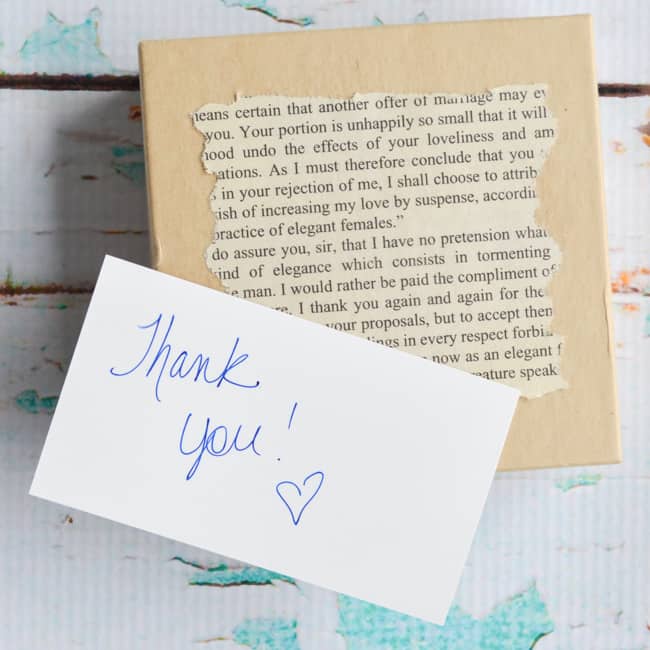 means certain that another offer of marriage may
you. Your portion is unhappily so small that it will
hood undo the effects of your loveliness and am
ations. As I must therefore conclude that you
in your rejection of me, I shall choose to attrib
ish of increasing my love by suspense, accordin
practice of elegant females."
do assure you, sir, that I have no pretension what
kind of elegance which consists in tormenting
man. I would rather be paid the compliment of
I thank you again and again for the
your proposals, but to accept them
lings in every respect forbi
now as an elegant f
reature speak
Thank
you!